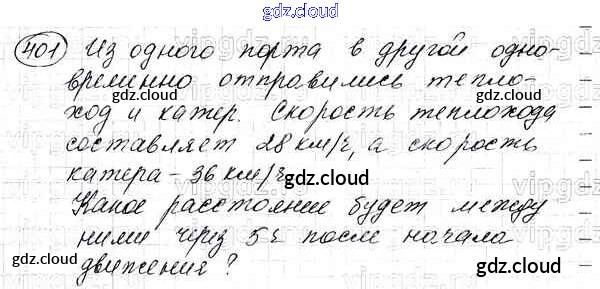 gdz.cloud
401 Из одного порта в другой одно-
временно отправились тепло-
ход и катер. Скорость теплохода
gdz.cloud gdz.cloud
составляет 28 км/ч, а скорость
катера - 36 км/ч.
gdz.cloud
Какое расстояние будет между
ними через 5 ч после начала
движения?
gdz.cloud gdz.cloud